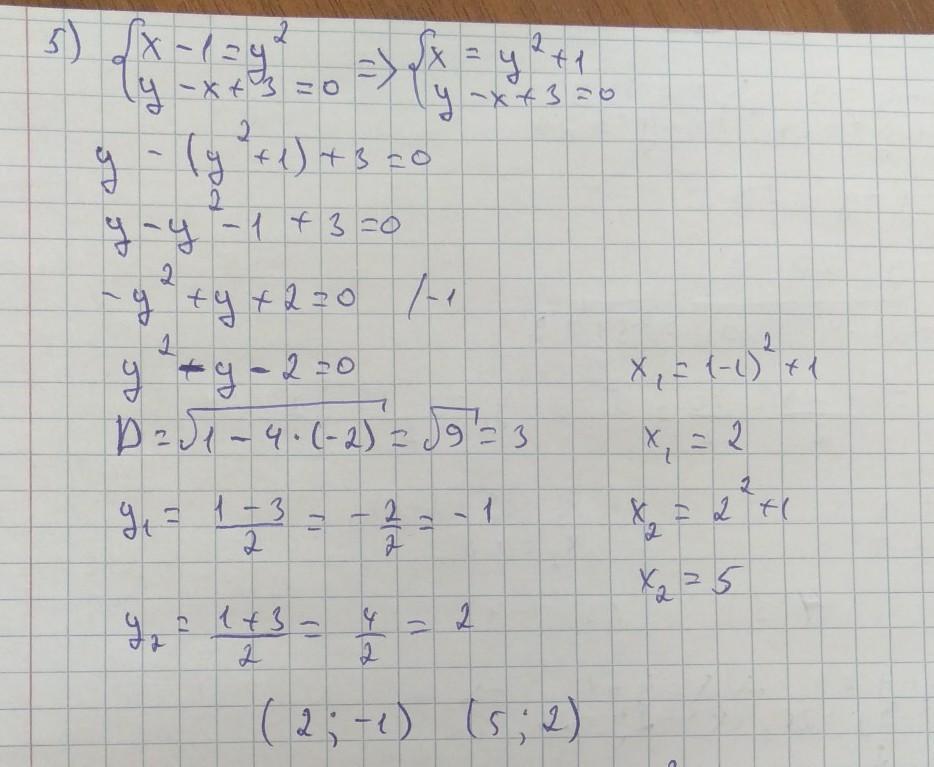 5) {x - 1 = y² => {x = y² + 1
{y - x + 3 = 0 {y - x + 3 = 0
y - (y² + 1) + 3 = 0
y - y² - 1 + 3 = 0
-y² + y + 2 = 0 /-1
y² - y - 2 = 0
D = √(1 - 4·(-2)) = √9 = 3
y₁ = (1 - 3)/2 = -2/2 = -1
y₂ = (1 + 3)/2 = 4/2 = 2
x₁ = (-1)² + 1
x₁ = 2
x₂ = 2² + 1
x₂ = 5
(2; -1) (5; 2)